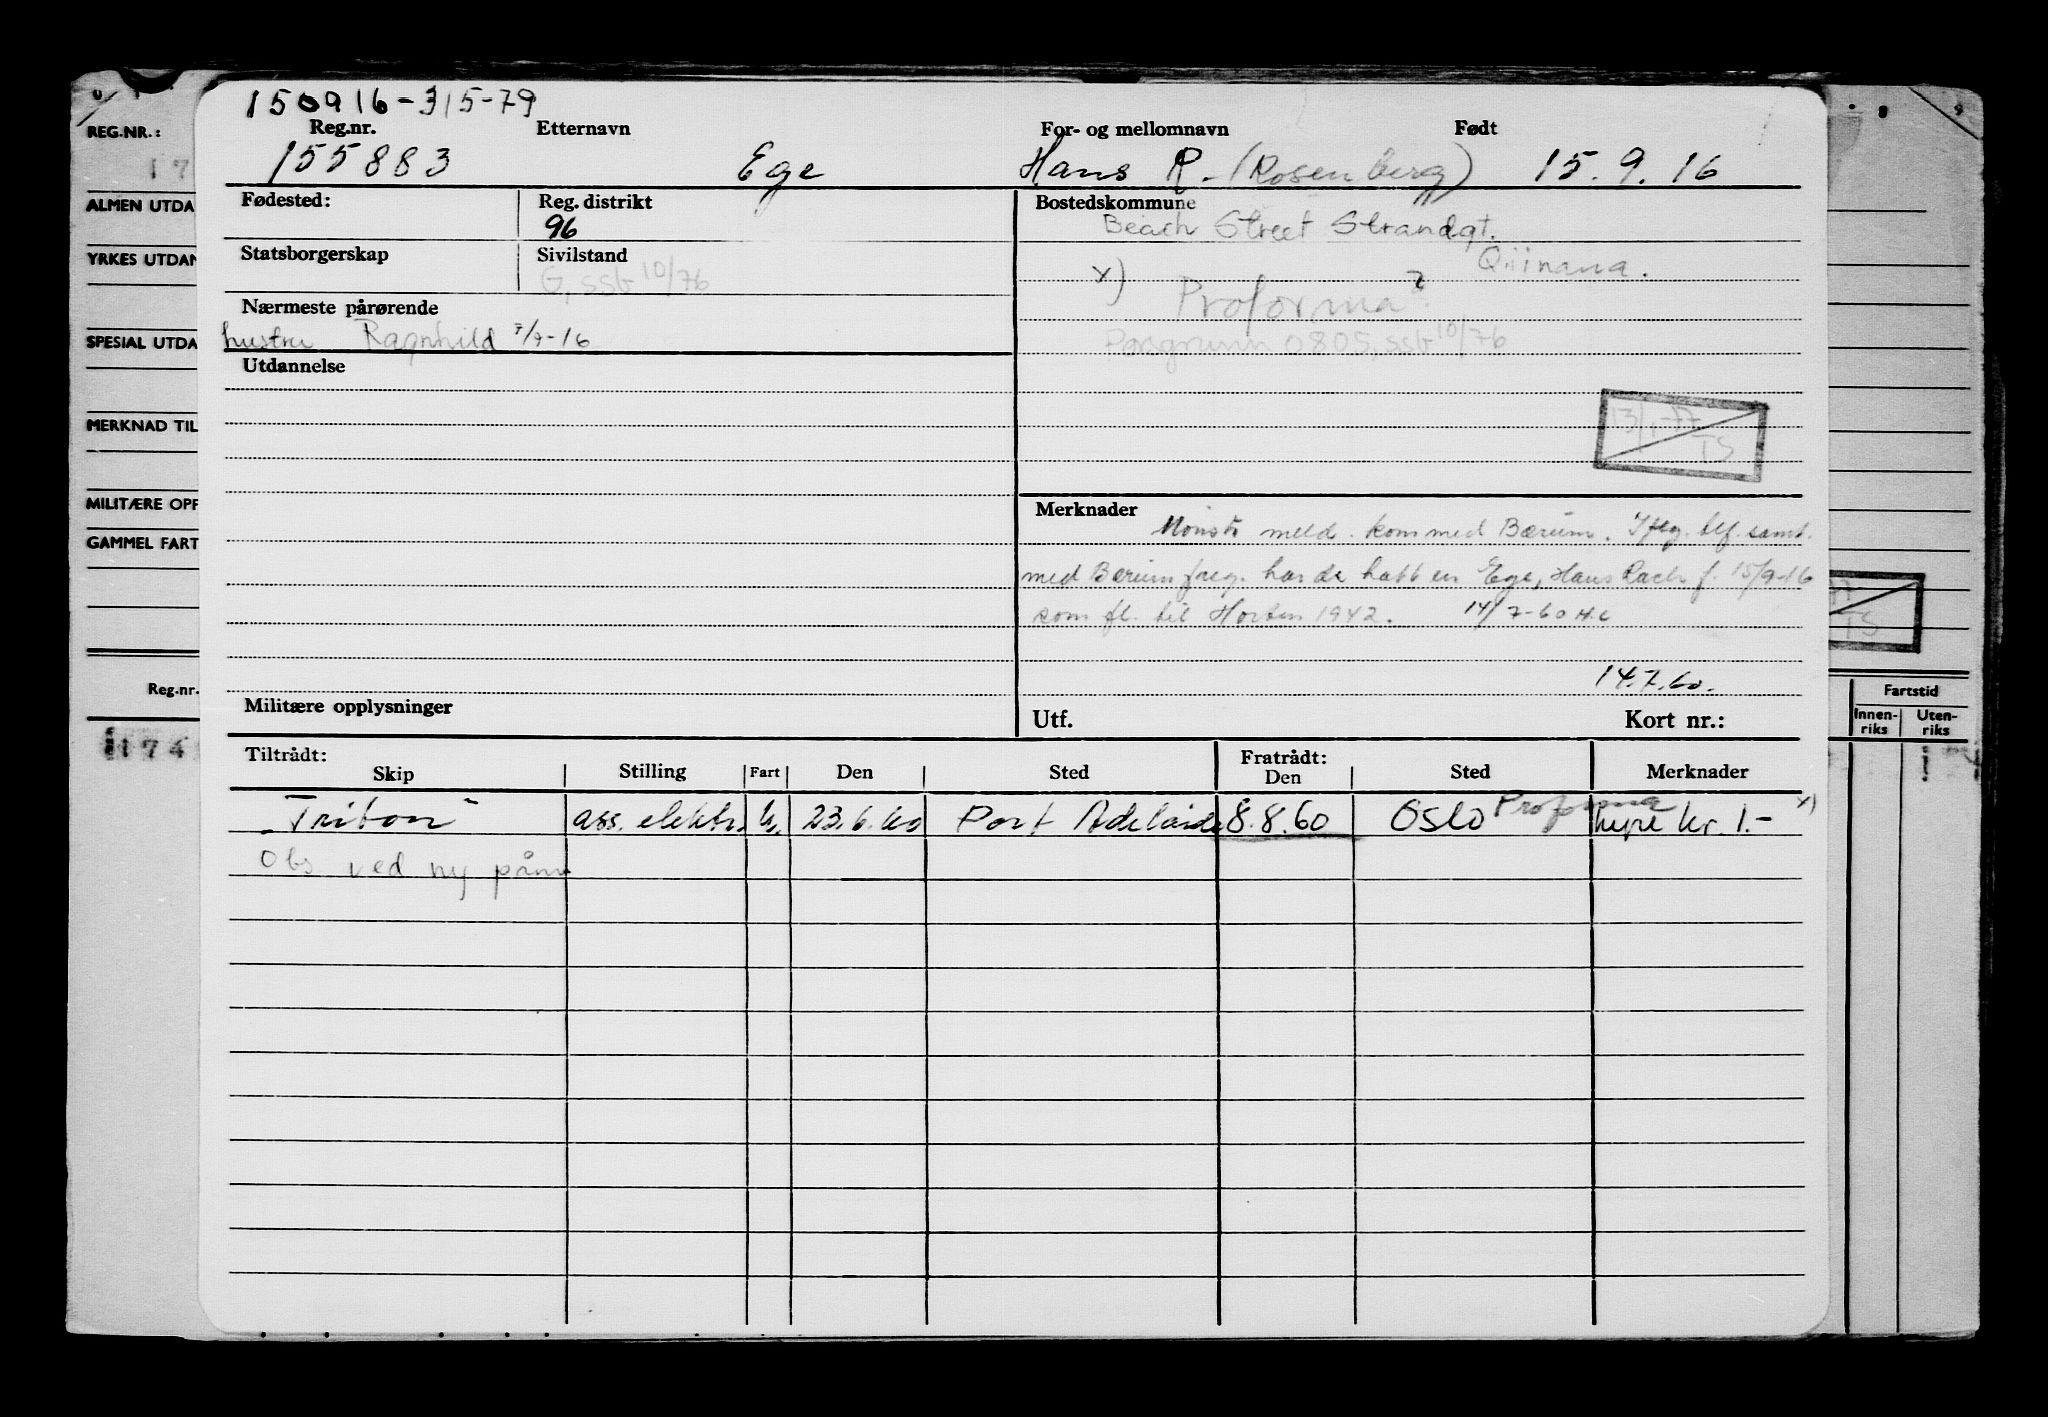 150916-31579
REG.NR.:
Reg.nr. Etternavn For- og mellomnavn Født
155883 Ege Hans R. (Rosenberg) 15.9.16
ALMEN UTDA
Fødested: Reg. distrikt Bostedskommune
96 Beach Street Strandgt.
YRKES UTDAN
Statsborgerskap Sivilstand
G, ssb 10/76 x) Proforma?
Nærmeste pårørende
hustru Ragnhild 7/9-16 Porsgrunn 0805, ssb 10/76
SPESIAL UTDA
Utdannelse
13/1-77
TS
MERKNAD TIL
MILITÆRE OPP
Merknader
meld. kom med Bærum. Iflg. tlf. samt.
GAMMEL FART
med Bærum freg. har de hatt en Ege, Hans f. 15/9-16
som fl. til Horten 1942. 14/7-60 H.C
TS
14.7.60.
Reg.nr. Fartstid
Militære opplysninger Utf. Kort nr.:
Innen-riks Uten-riks
174
Tiltrådt: Fratrådt:
Skip Stilling Fart Den Sted Den Sted Merknader
"Triton" ass. elektr. u. 23.6.60 Port Adelaide 8.8.60 Oslo Proforma hyre kr. 1.- x)
Obs ved ny påm